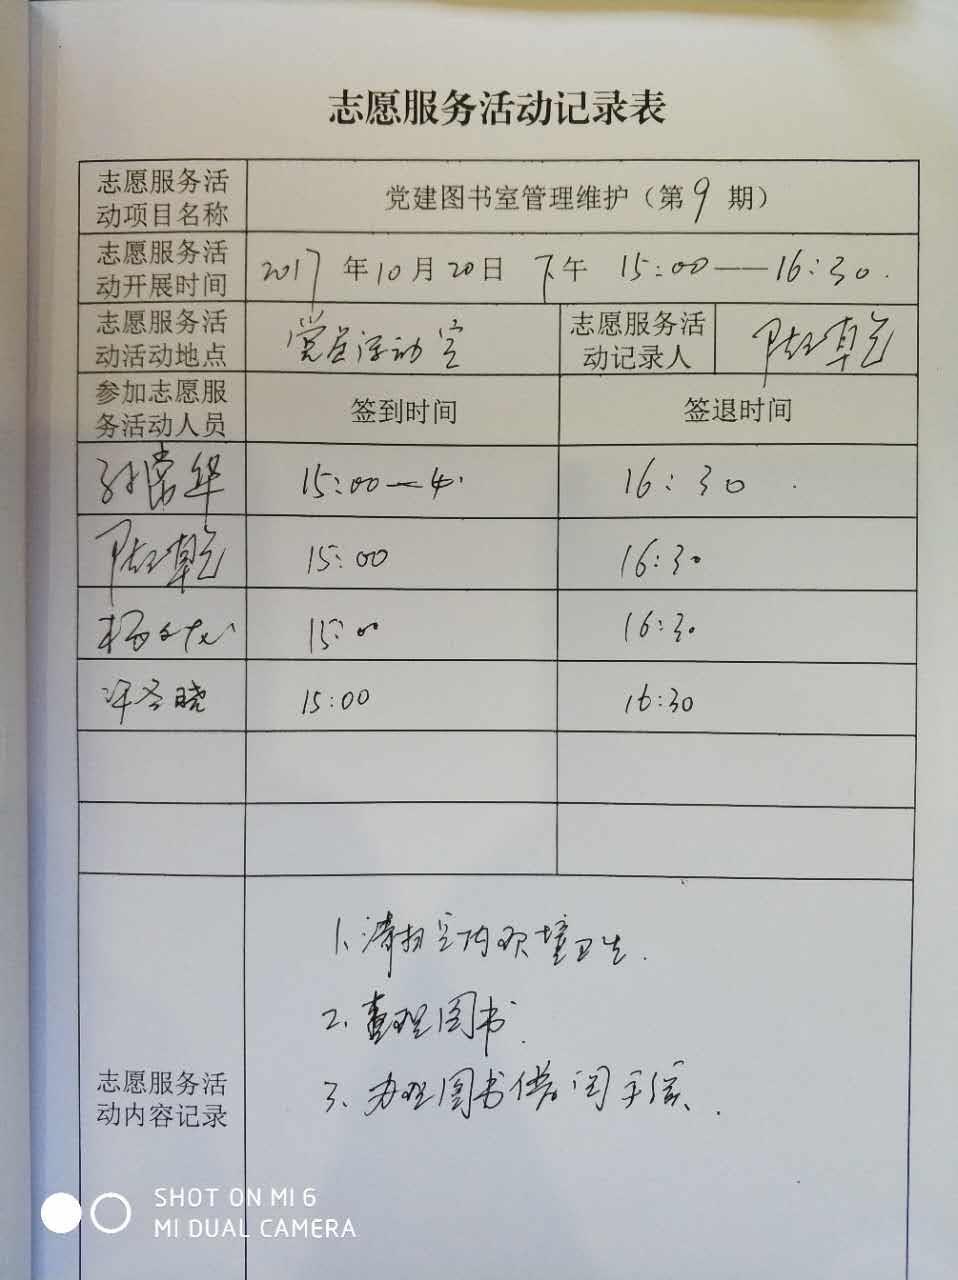 志愿服务活动记录表
志愿服务活
动项目名称
党建图书室管理维护（第9期）
志愿服务活
动开展时间
2017年10月20日 下午 15:00——16:30.
志愿服务活
动活动地点
党员活动室
志愿服务活
动记录人
参加志愿服
务活动人员
签到时间
签退时间
15:00
16:30
15:00
16:30
15:00
16:30
许圣晓
15:00
16:30
志愿服务活
动内容记录
1、清扫室内环境卫生.
2、整理图书.
3、办理图书借阅手续.
SHOT ON MI 6
MI DUAL CAMERA